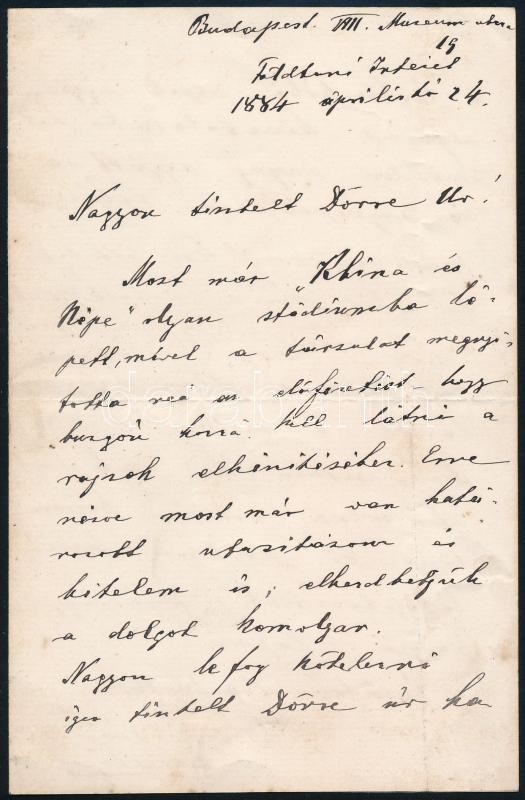 Budapest. VIII. Museum utca
19
Földtani Intézet
1884 április hó 24.
Nagyon tisztelt Dörre Úr!
Most már "Khina és
Népe" olyan stádiumba lé-
pett, mivel a társulat megnyi-
totta rea az előfizetést hogy
buzgón hozzá kell látni a
rajzok elkészítéséhez. Erre
nézve most már van hatá-
rozott utasításom és
hitelem is; elkezdhetjük
a dolgot komolyan.
Nagyon le fog kötelezni
igen tisztelt Dörre úr ha